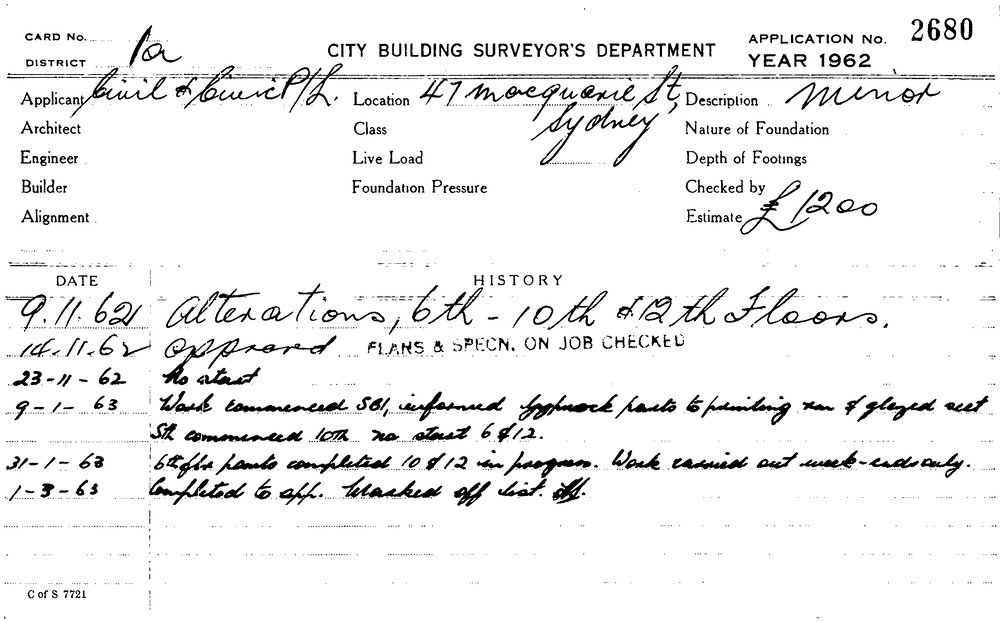 CARD No.
DISTRICT 1a
CITY BUILDING SURVEYOR'S DEPARTMENT
APPLICATION No. 2680
YEAR 1962
Applicant Civil & Civic P/L. Location 47 Macquarie St, Sydney Description Minor
Architect Class Nature of Foundation
Engineer Live Load Depth of Footings
Builder Foundation Pressure Checked by
Alignment Estimate £1200
DATE HISTORY
9.11.62 Alterations, 6th - 10th & 12th Floors.
14-11-62 approved PLANS & SPECN. ON JOB CHECKED
23-11-62 No start
9-1-63 Work commenced SB1, informed Gyprock parts to printing rm & glazed sect
5th commenced 10th no start 6 & 12.
31-1-63 6th flr parts completed 10 & 12 in progress. Work carried out week-ends only.
1-3-63 Completed to app. Marked off list.
C of S 7721